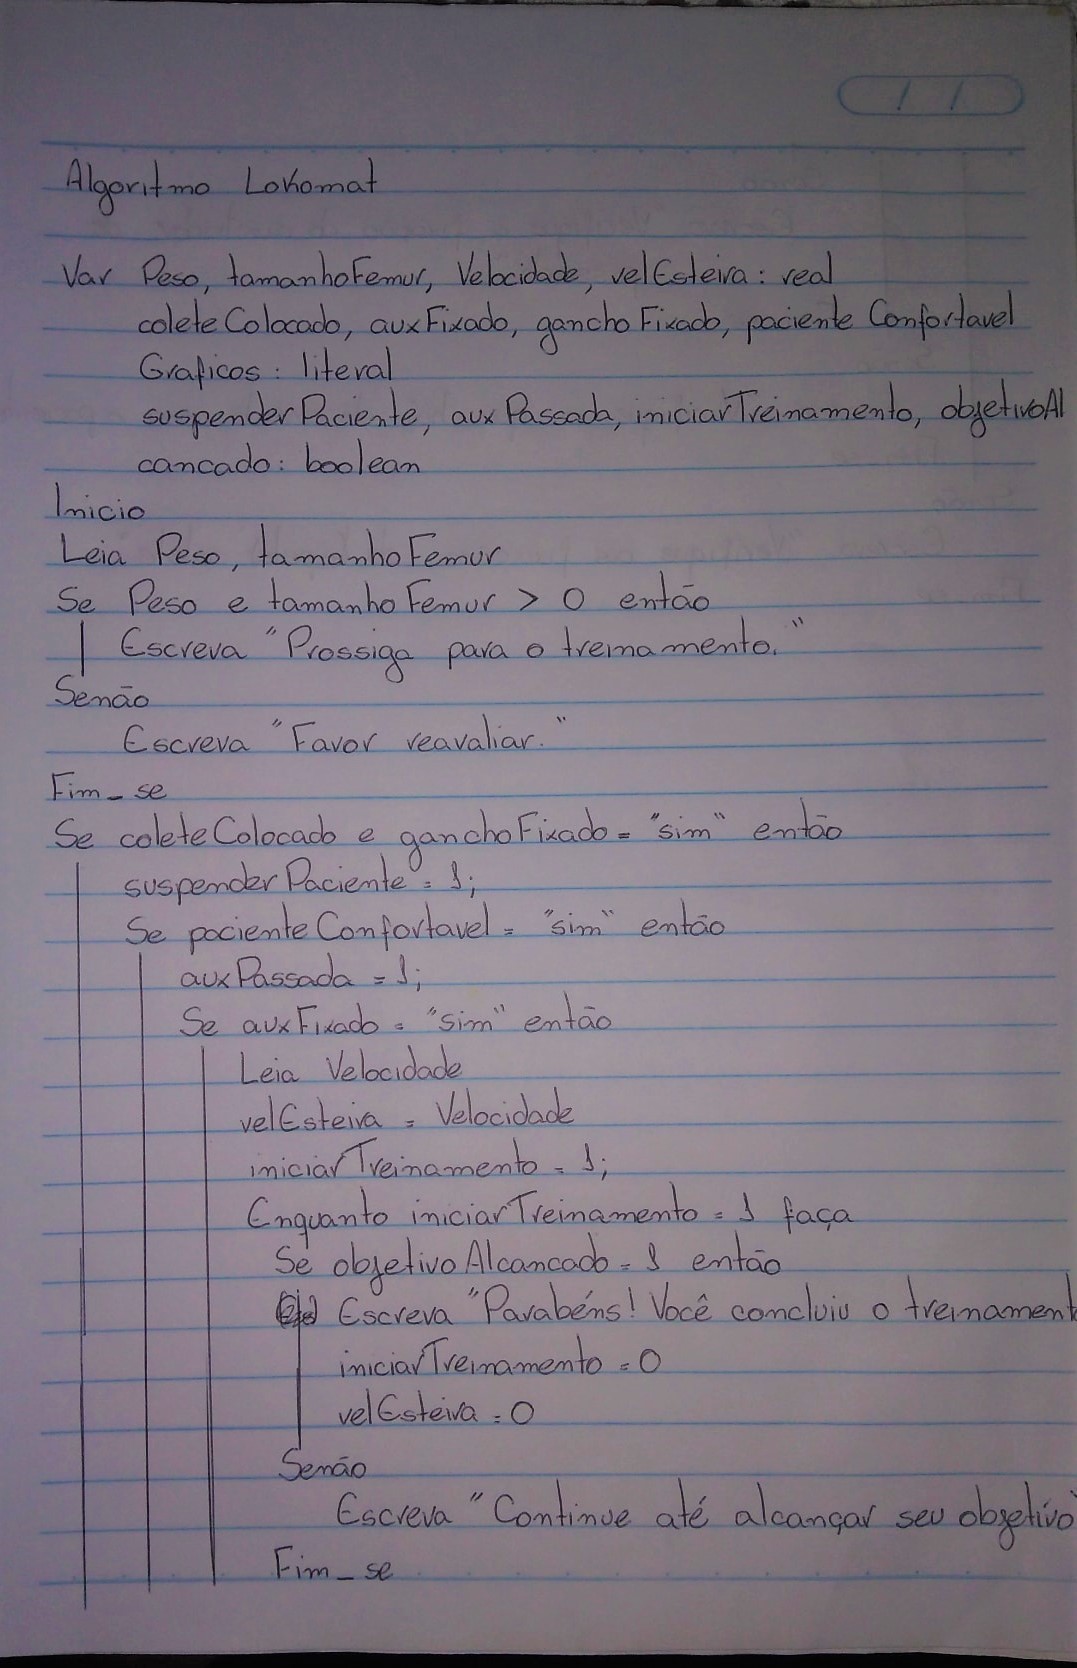 Algoritmo Lokomat
Var Peso, tamanhoFemur, Velocidade, velEsteira: real
coleteColocado, auxFixado, ganchoFixado, pacienteConfortavel
Graficos: literal
suspenderPaciente, auxPassada, iniciarTreinamento, objetivoAl
cancado: boolean
Inicio
Leia Peso, tamanhoFemur
Se Peso e tamanhoFemur > 0 então
Escreva "Prossiga para o treinamento."
Senão
Escreva "Favor reavaliar."
Fim_se
Se coleteColocado e ganchoFixado = "sim" então
suspenderPaciente = 1;
Se pacienteConfortavel = "sim" então
auxPassada = 1;
Se auxFixado = "sim" então
Leia Velocidade
velEsteira = Velocidade
iniciarTreinamento = 1;
Enquanto iniciarTreinamento = 1 faça
Se objetivoAlcancado = 1 então
Escreva "Parabéns! Você concluiu o treinament
iniciarTreinamento = 0
velEsteira = 0
Senão
Escreva "Continue até alcançar seu objetivo"
Fim_se